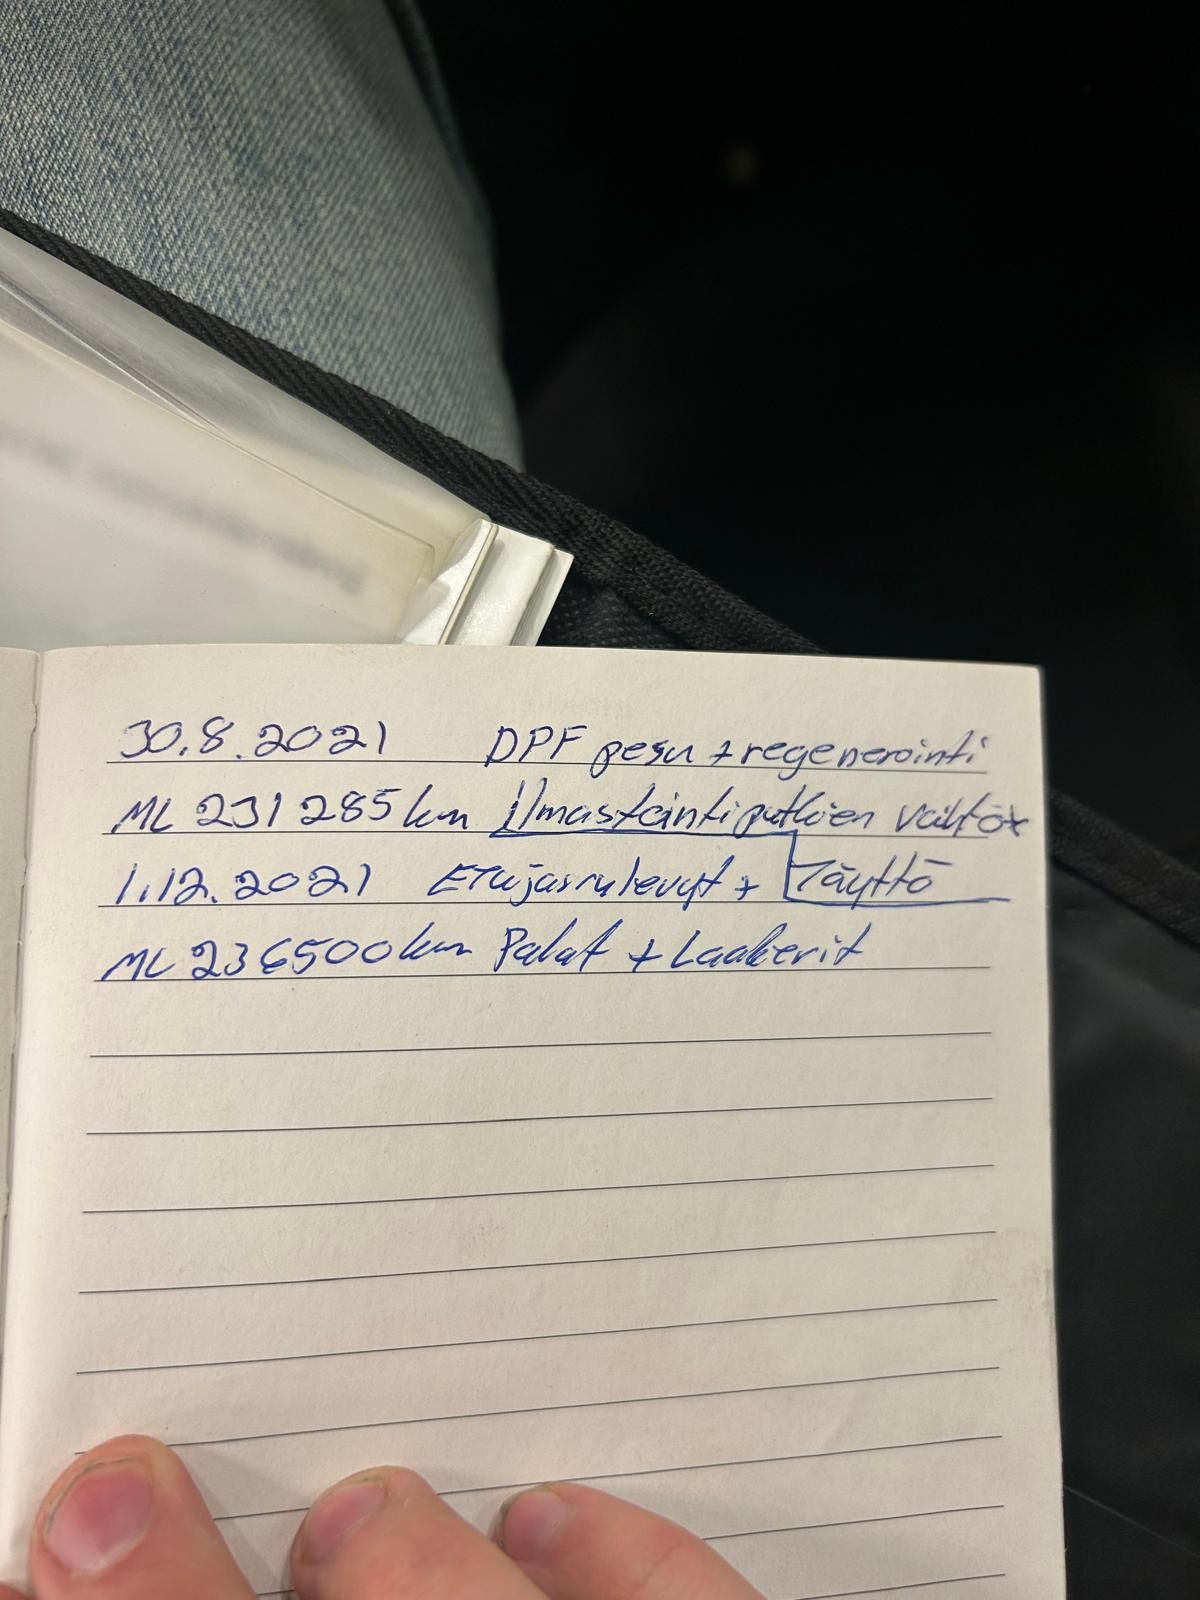 30.8.2021 DPF pesu + regenerointi
ML 231 285 km Ilmastointiputkien vaihto +
1.12.2021 Etujarrulevyt + Täyttö
ML 236500 km Palat + Laakerit